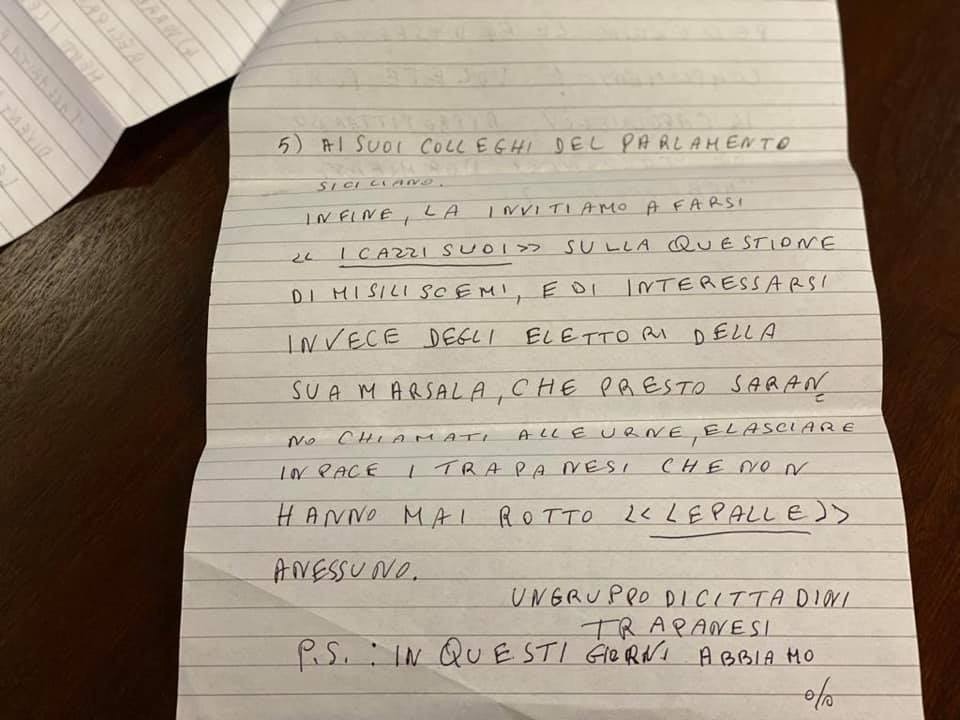 5) AI SUOI COLLEGHI DEL PARLAMENTO
SICILIANO.
INFINE, LA INVITIAMO A FARSI
<< I CAZZI SUOI >> SULLA QUESTIONE
DI MISILISCEMI, E DI INTERESSARSI
INVECE DEGLI ELETTORI DELLA
SUA MARSALA, CHE PRESTO SARAN
NO CHIAMATI ALLE URNE, E LASCIARE
IN PACE I TRAPANESI CHE NON
HANNO MAI ROTTO << LE PALLE >>
A NESSUNO.
UN GRUPPO DI CITTADINI
TRAPANESI
P.S. : IN QUESTI GIORNI ABBIAMO
%